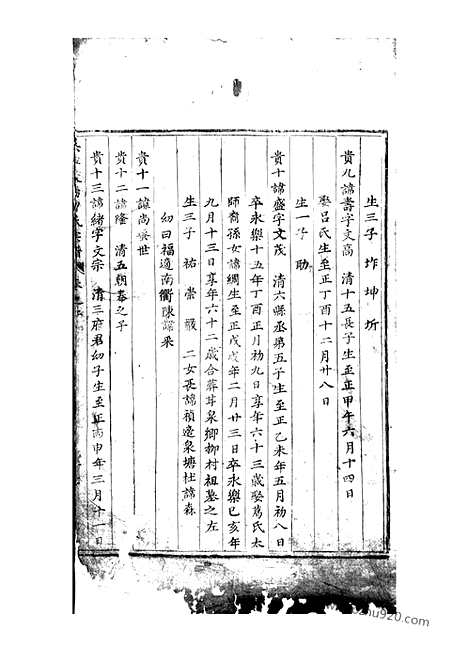 生三子 坼 坤 圻
貴九諱壽字文高 清十五長子生至正甲午六月十四
娶呂氏生至正丁酉十二月廿八日
生一子 助
貴十諱盛字文茂 清六縣丞第五子生至正乙未年五月初八日
卒永樂十五年丁酉正月初九日享年六十三歲娶葛氏太
師裔孫女諱綢生至正戊戌年二月廿三日卒永樂己亥年
九月十三日享年六十二歲合葬芽泉鄉柳村祖墓之左
生三子 祐 崇 二女長諱禎適泉塘杜諱森
幼曰福適南衢陳諱采
貴十一諱尚 世
貴十二諱隆 清五朝奉之子
貴十三諱緒字文宗 清三府君幼子生至正丙申年三月十一日
ou920.com